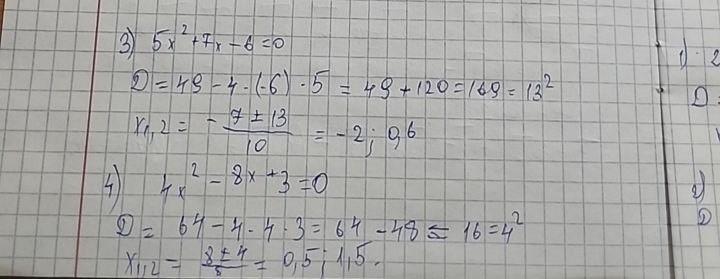 3) 5x² + 7x - 6 = 0
D = 49 - 4 · (-6) · 5 = 49 + 120 = 169 = 13²
x₁,₂ = - 7 ± 13 / 10 = - 2; 0,6
4) 4x² - 8x + 3 = 0
D = 64 - 4 · 4 · 3 = 64 - 48 = 16 = 4²
x₁,₂ = 8 ± 4 / 8 = 0,5; 1,5.
1)
D
2)
D